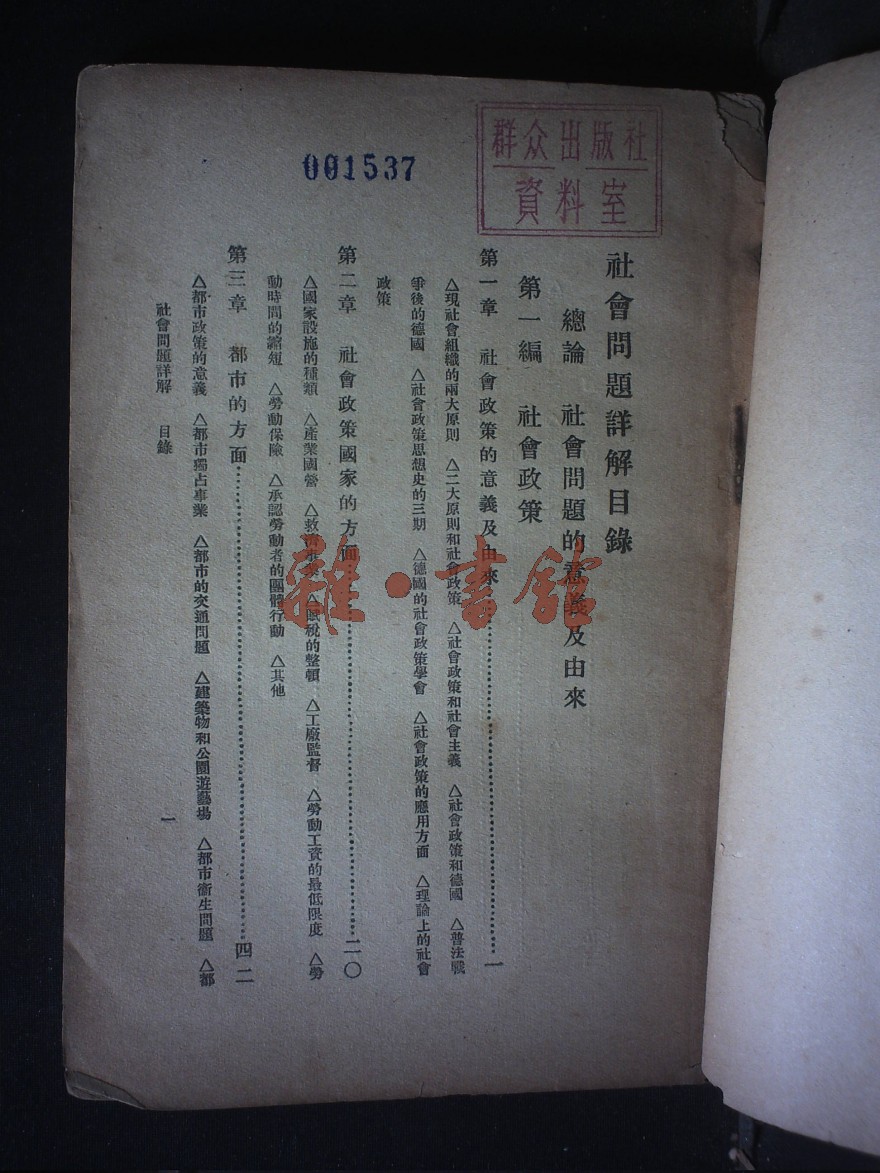 群众出版社
資料室
001537
社會問題詳解目錄
總論 社會問題的意義及由來
第一編 社會政策
第一章 社會政策的意義及由來…………一
△現社會組織的兩大原則 △二大原則和社會政策 △社會政策和社會主義 △社會政策和德國 △普法戰
爭後的德國 △社會政策思想史的三期 △德國的社會政策學會 △社會政策的應用方面 △理論上的社會
政策
第二章 社會政策國家的方面…………二〇
△國家設施的種類 △產業國營 △救濟事業 △賦稅的整頓 △工廠監督 △勞動工資的最低限度 △勞
動時間的縮短 △勞動保險 △承認勞動者的團體行動 △其他
第三章 都市的方面…………四二
△都市政策的意義 △都市獨占事業 △都市的交通問題 △建築物和公園遊藝場 △都市衞生問題 △都
社會問題詳解 目錄 一
雜·書館